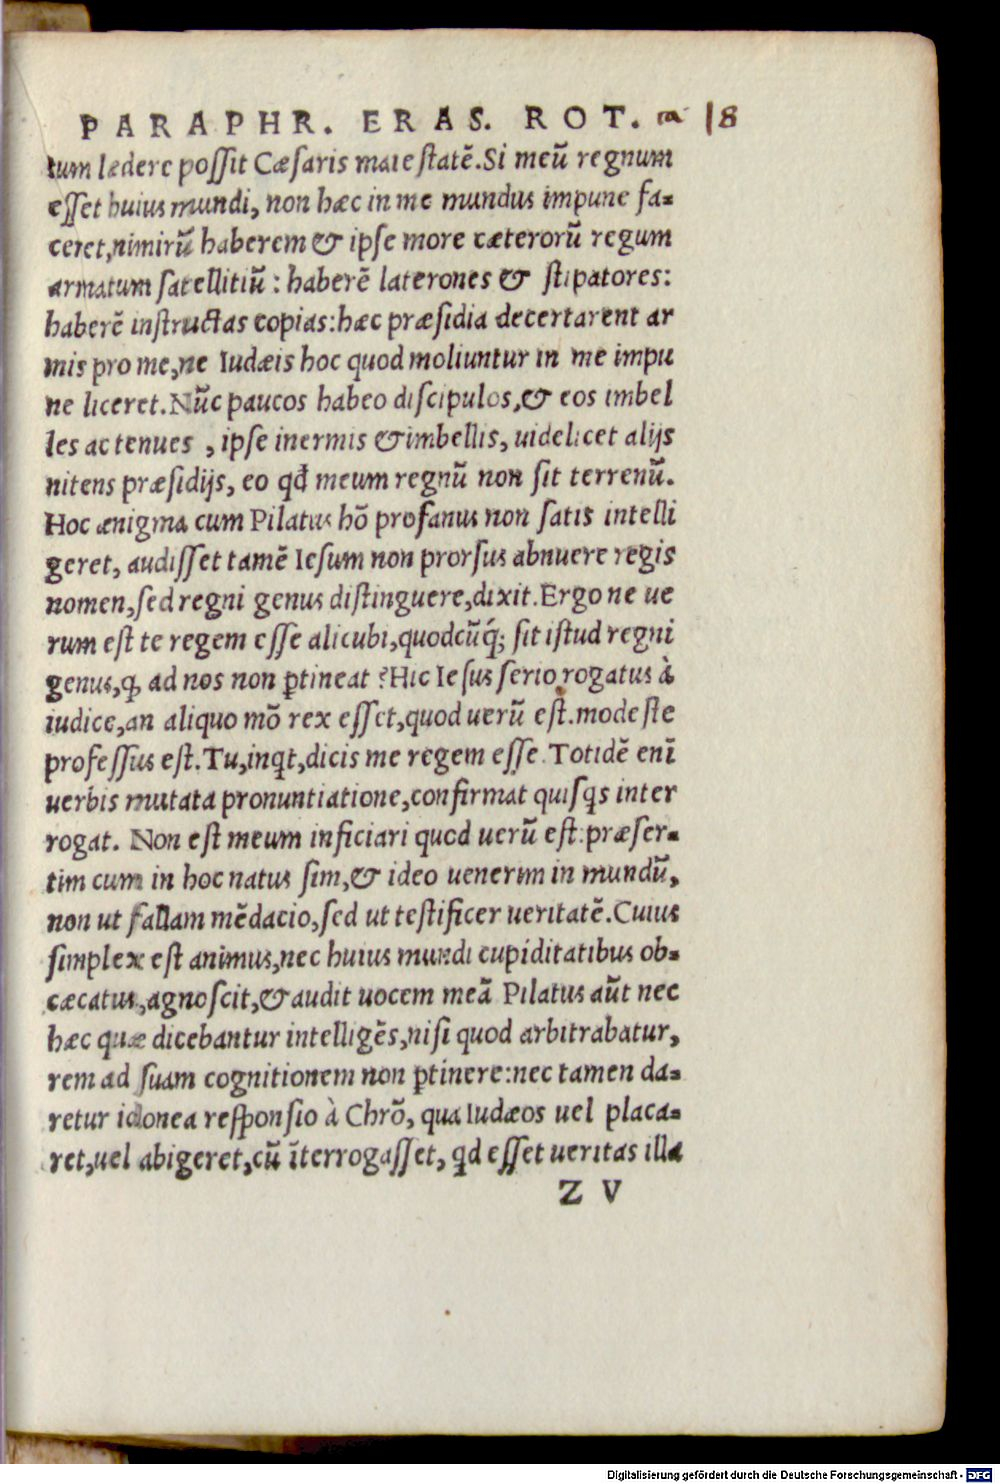 PARAPHR. ERAS. ROT. ca 18
tum lædere poſſit Cæſaris maieſtatē. Si meū regnum
eſſet huius mundi, non hæc in me mundus impune fa-
ceret, nimirū haberem & ipſe more cæterorū regum
armatum ſatellitiū : haberē laterones & ſtipatores:
haberē inſtructas copias: hæc præſidia decertarent ar
mis pro me, ne Iudæis hoc quod moliuntur in me impu
ne liceret. Nūc paucos habeo diſcipulos, & eos imbel
les ac tenues , ipſe inermis & imbellis, uidelicet alijs
nitens præſidijs, eo qđ meum regnū non ſit terrenū.
Hoc ænigma cum Pilatus hō profanus non ſatis intelli
geret, audiſſet tamē Ieſum non prorſus abnuere regis
nomen, ſed regni genus diſtinguere, dixit. Ergo ne ue
rum eſt te regem eſſe alicubi, quodcūq́; ſit iſtud regni
genus, ꝙ ad nos non ꝑtineat ? Hic Ieſus ſerio rogatus à
iudice, an aliquo mō rex eſſet, quod uerū eſt. modeſte
profeſſus eſt. Tu, inqt, dicis me regem eſſe. Totidē enī
uerbis mutata pronuntiatione, confirmat quiſqs inter
rogat. Non eſt meum inficiari quod uerū eſt. præſer-
tim cum in hoc natus ſim, & ideo uenerim in mundū,
non ut fallam mēdacio, ſed ut teſtificer ueritatē. Cuius
ſimplex eſt animus, nec huius mundi cupiditatibus ob-
cæcatus, agnoſcit, & audit uocem meā Pilatus aūt nec
hæc quæ dicebantur intelligēs, niſi quod arbitrabatur,
rem ad ſuam cognitionem non ꝑtinere: nec tamen da-
retur idonea reſponſio à Chrō, qua Iudæos uel placa-
ret, uel abigeret, cū īterrogaſſet, qd eſſet ueritas illa
Z V
Digitalisierung gefördert durch die Deutsche Forschungsgemeinschaft - DFG